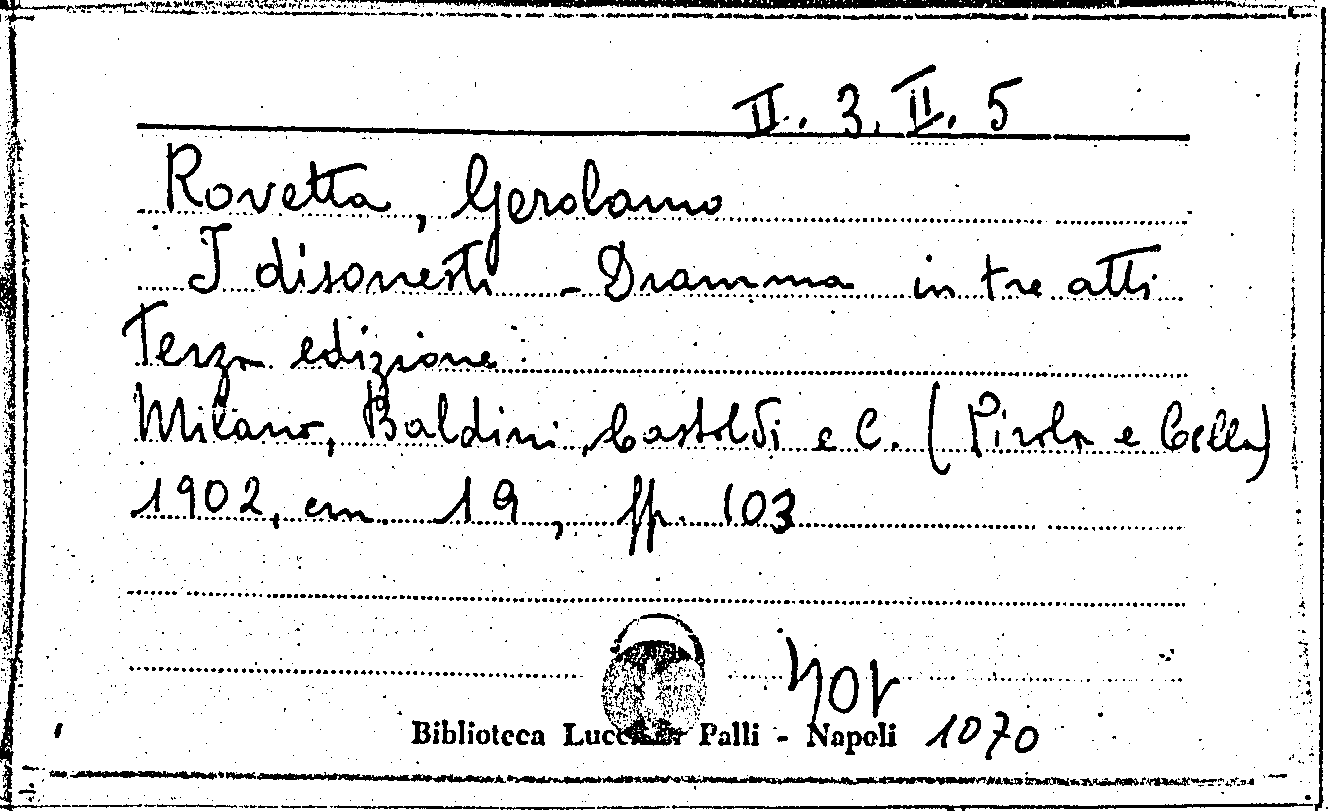 II. 3. II. 5
Rovetta, Gerolamo
I disonesti - Dramma in tre atti
Terza edizione
Milano, Baldini, Castoldi e C. (Pirola e Cella)
1902, cm. 19, pp. 103
Biblioteca Palli - Napoli 1070